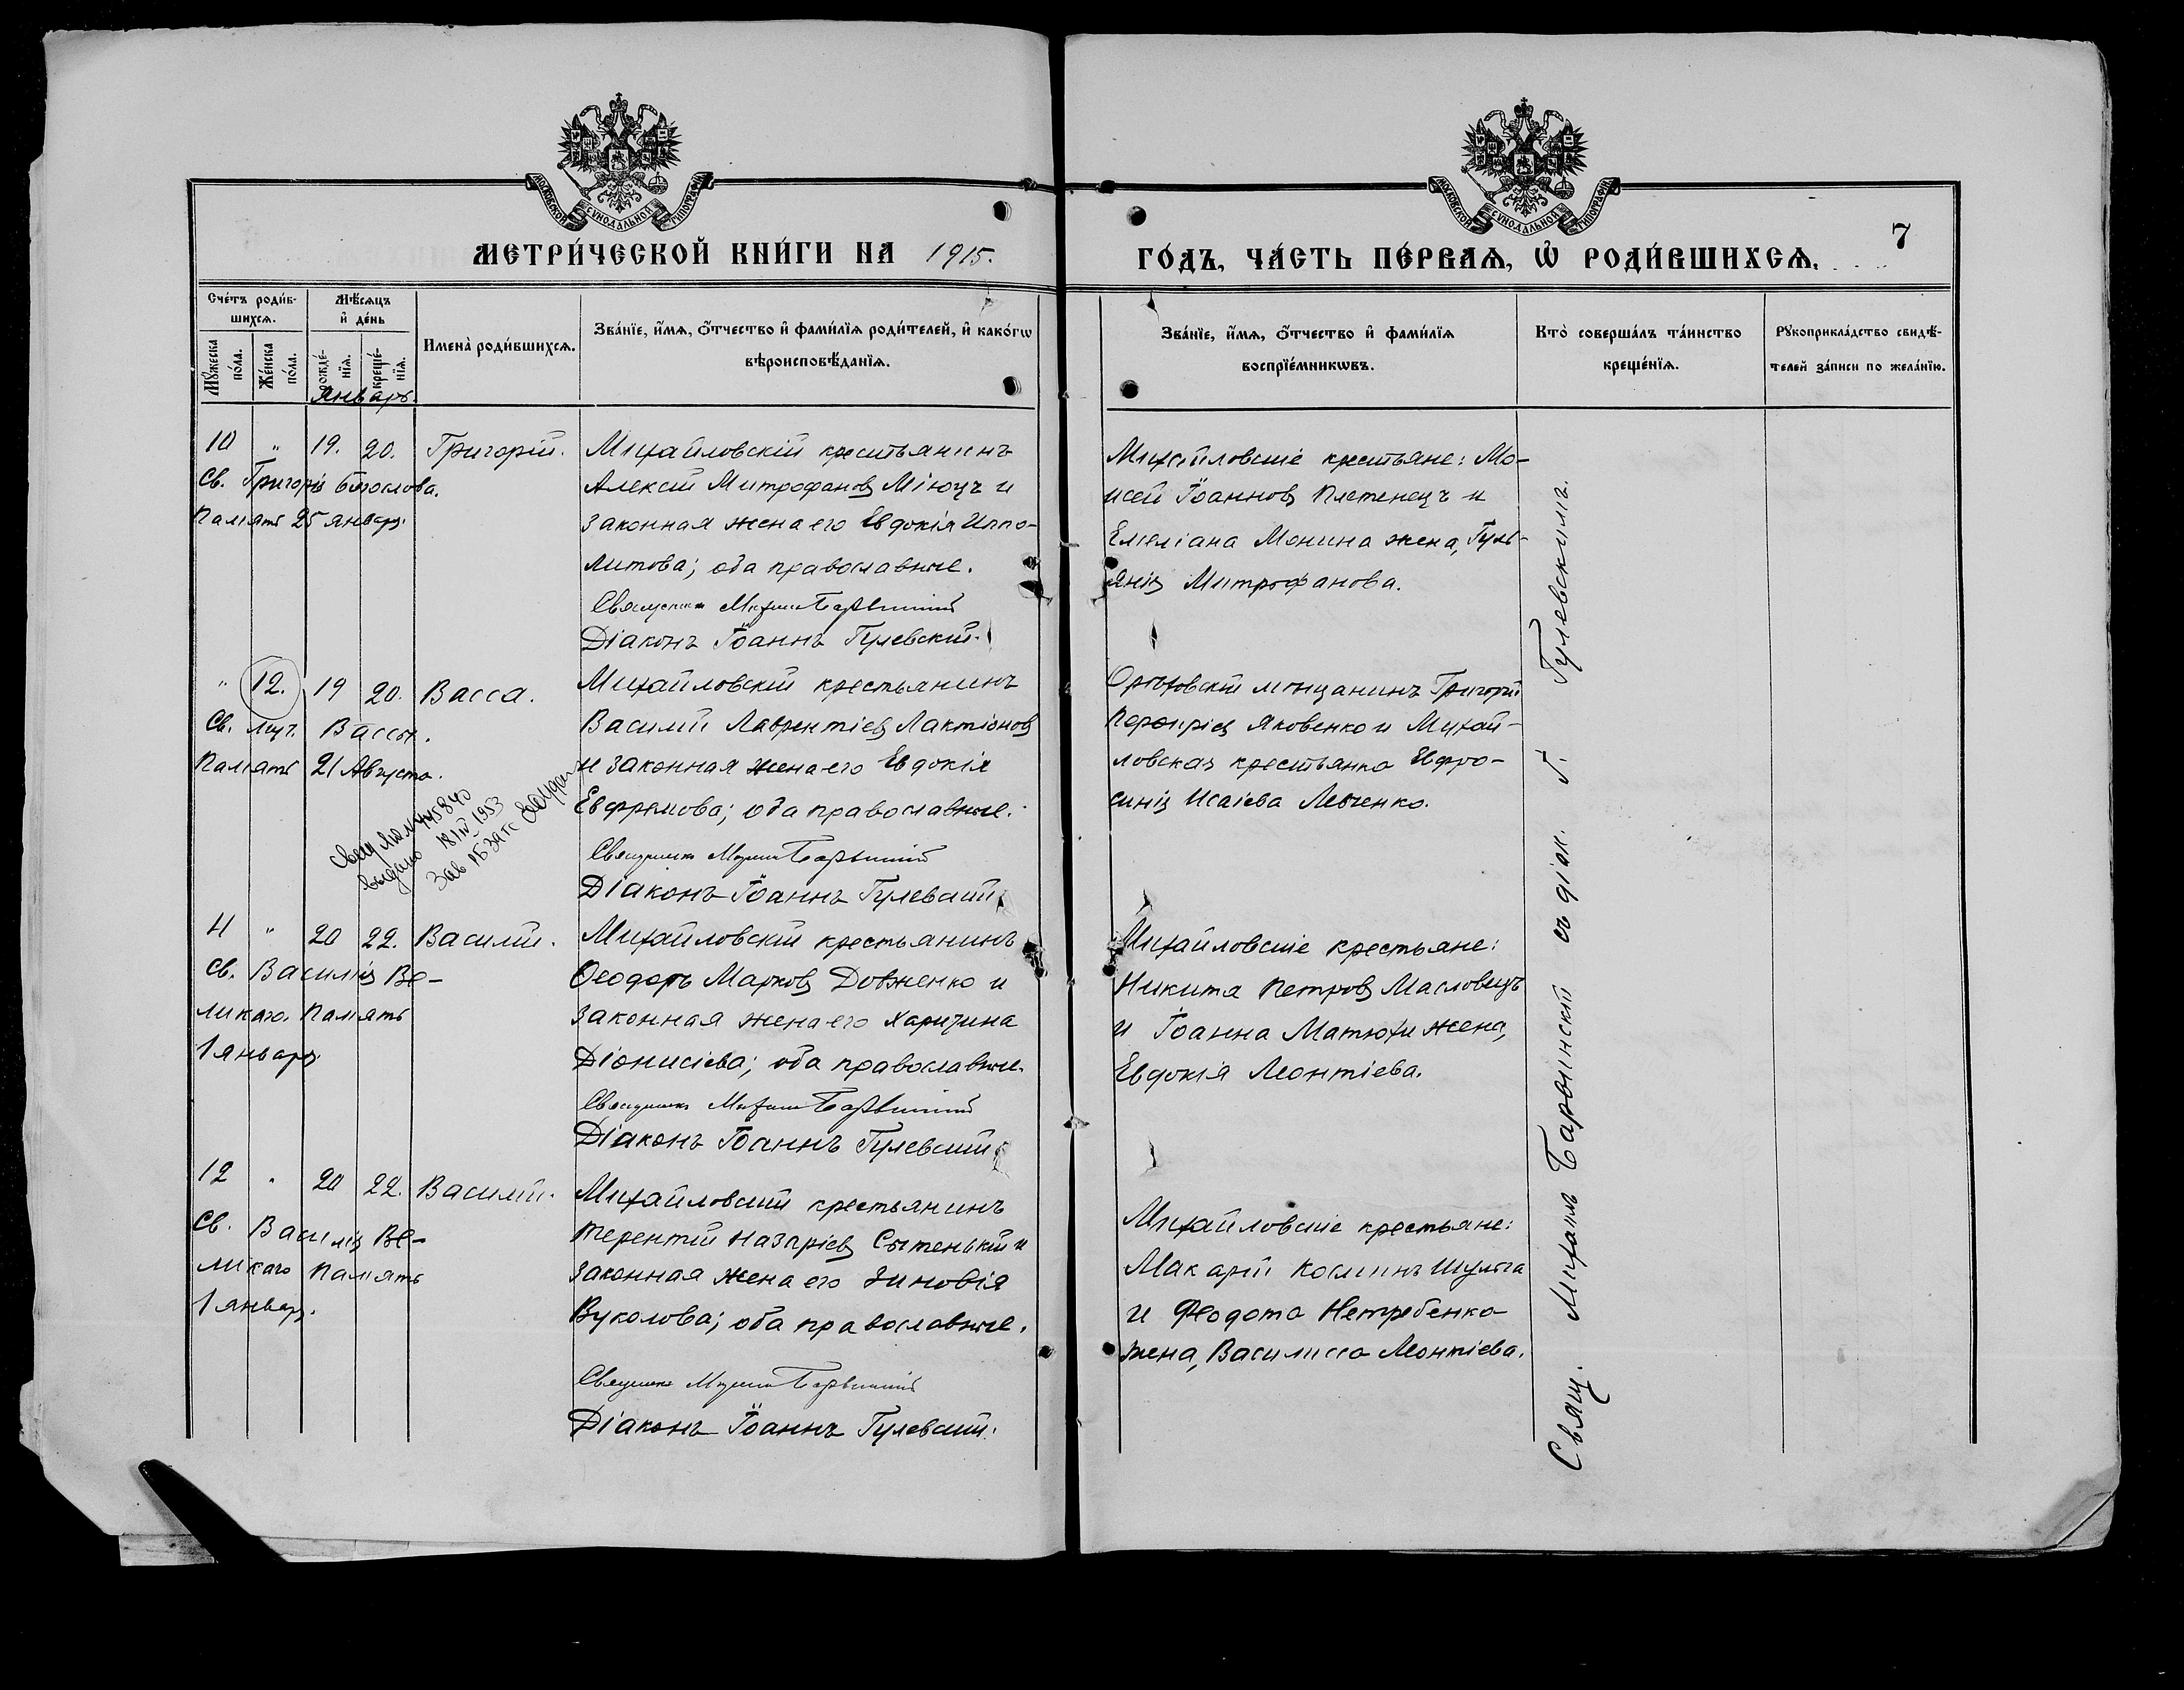 МОСКОВСКОЙ СУНОДАЛЬНОЙ ТИПОГРАФІИ
МОСКОВСКОЙ СУНОДАЛЬНОЙ ТИПОГРАФІИ
МЕТРИ́ЧЕСКОЙ КНИ́ГИ НА 1915.
ГО́ДЪ, ЧА́СТЬ ПЕ́РВАѦ, Ѡ҆ РОДИ́ВШИХСѦ.
7
Сче́тъ роди́вшихсѧ.
Мꙋ́жеска по́ла.
Же́нска по́ла.
Мѣ́сѧцъ и҆ де́нь
рожде́нїѧ.
креще́нїѧ.
Январь.
Имена̀ роди́вшихсѧ.
Зва́нїе, и҆́мѧ, ѻ҆́тчество и҆ фами́лїѧ роди́телей, и҆ како́гѡ
вѣроисповѣ́данїѧ.
Зва́нїе, и҆́мѧ, ѻ҆́тчество и҆ фами́лїѧ
воспрїе́мникѡвъ.
Кто̀ соверша́лъ та́инство
креще́нїѧ.
Рꙋкоприкла́дство свидѣ́-
телей за́писи по жела́нїю.
10 " 19. 20. Григорій.
Св. Григорія Богослова.
Память 25 января.
Михайловскій крестьянинъ
Алексій Митрофановъ Міюцъ и
законная жена его Евдокія Иппо-
литова; оба православные.
Священникъ Михаилъ Барвинскій
Діаконъ Іоаннъ Гулевскій.
Михайловскіе крестьяне: Мо-
исей Іоанновъ Плетенецъ и
Емеліана Монина жена, Гуль-
янія Митрофанова.
" 12. 19 20. Васса.
Св. муч. Вассы.
Память 21 Августа.
выдано 18 IV 1953
Михайловскій крестьянинъ
Василій Лаврентіевъ Лактіоновъ
и законная жена его Евдокія
Евфремова; оба православные.
Священникъ Михаилъ Барвинскій
Діаконъ Іоаннъ Гулевскій.
Орѣховскій мѣщанинъ Григорій
Порфиріевъ Яковенко и Михай-
ловская крестьянка Евфро-
синія Исаіева Левченко.
11 " 20 22. Василій.
Св. Василія Ве-
ликаго. Память
1 января.
Михайловскій крестьянинъ
Ѳеодоръ Марковъ Довженко и
законная жена его Харитина
Діонисіева; оба православные.
Священникъ Михаилъ Барвинскій
Діаконъ Іоаннъ Гулевскій.
Михайловскіе крестьяне:
Никита Петровъ Масловецъ
и Іоанна Матюхи жена,
Евдокія Леонтіева.
12 " 20 22. Василій.
Св. Василія Ве-
ликаго Память
1 января.
Михайловскій крестьянинъ
Терентій Назаріевъ Сытенькій и
законная жена его Зиновія
Вуколова; оба православные.
Священникъ Михаилъ Барвинскій
Діаконъ Іоаннъ Гулевскій.
Михайловскіе крестьяне:
Макарій Косминъ Шульга
и Ѳеодота Нетребенко
жена, Василисса Леонтіева.
Свящ. Михаилъ Барвинскій съ діак. І. Гулевскимъ.